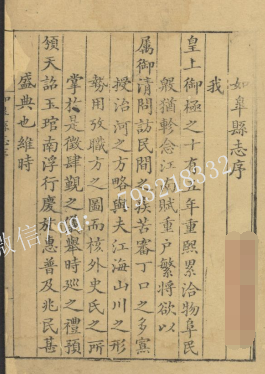 如臯縣志序
我
皇上御極之十有五年重熙累洽物阜民
殷猶軫念江
賦重戶繁將欲以
属御清問訪民間之疾苦審丁口之多寡
授治河之方略與夫江海山川之形
勢用攷職方之圖而核外史氏之所
掌於是徵肆覲之
舉時巡之禮預
頒天詔玉琯南浮行慶施惠普及兆民甚
盛典也維時